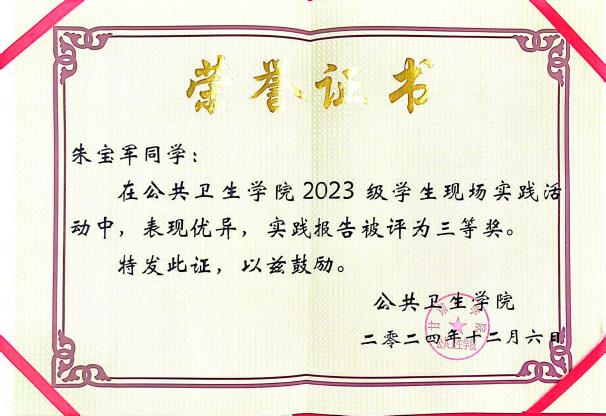 荣誉证书
朱宝军同学：
在公共卫生学院 2023 级学生现场实践活
动中，表现优异，实践报告被评为三等奖。
特发此证，以兹鼓励。
公共卫生学院
二零二四年十二月六日
公共卫生学院